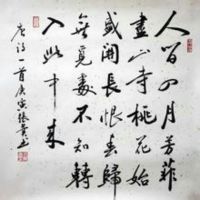 人間四月芳菲
盡山寺桃花始
盛開長恨春歸
無覓處不知轉
入此中来
唐詩一首庚寅